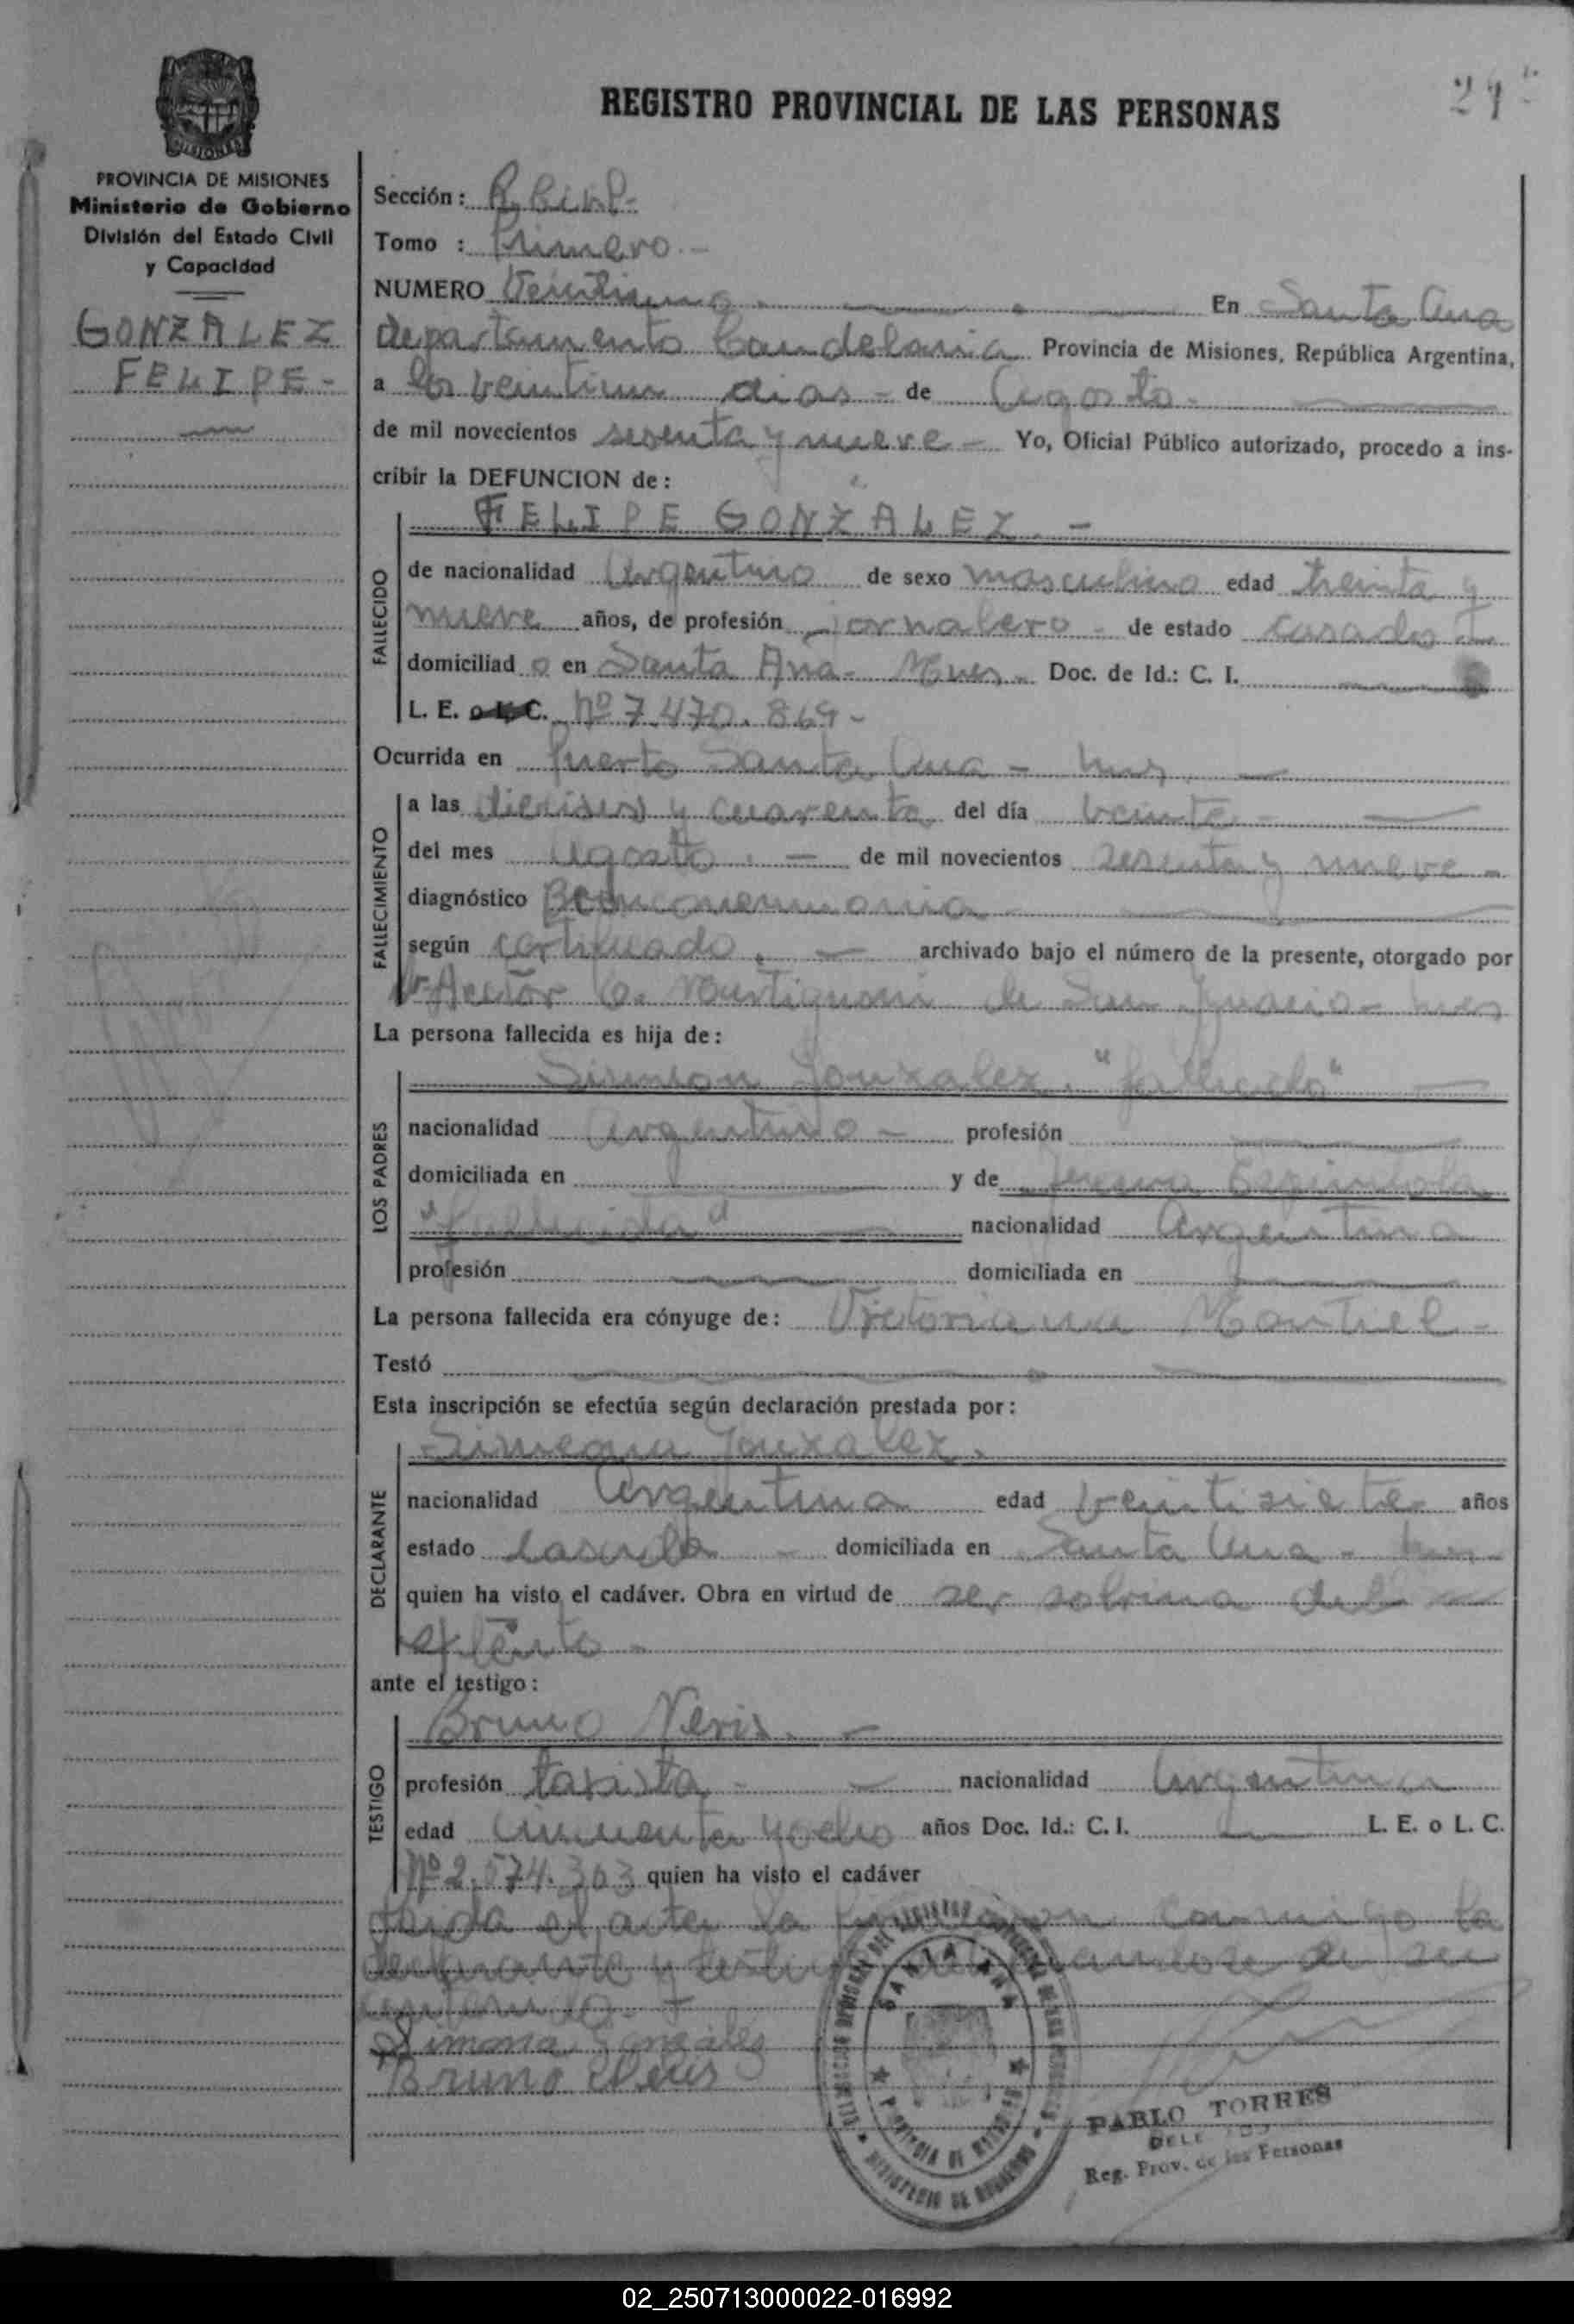 REGISTRO PROVINCIAL DE LAS PERSONAS
MISIONES
PROVINCIA DE MISIONES
Ministerio de Gobierno
División del Estado Civil
y Capacidad
GONZALEZ
FELIPE -
Sección:
Tomo : Primero -
NUMERO Veintiuno. En Santa Ana
departamento Candelaria Provincia de Misiones, República Argentina,
a los veintiun dias - de Agosto.
de mil novecientos sesenta y nueve - Yo, Oficial Público autorizado, procedo a ins-
cribir la DEFUNCION de:
FELIPE GONZALEZ. -
FALLECIDO
de nacionalidad Argentino de sexo masculino edad treinta y
nueve años, de profesión jornalero - de estado casado
domiciliad o en Santa Ana - Doc. de Id.: C. I.
L. E. o L. C. Nº 7.470.869 -
Ocurrida en Puerto Santa Ana -
FALLECIMIENTO
a las dieciseis y cuarenta del día veinte -
del mes Agosto. - de mil novecientos sesenta y nueve -
diagnóstico Bronconeumonia
según certificado, archivado bajo el número de la presente, otorgado por
Dr Hector de San Ignacio -
La persona fallecida es hija de:
LOS PADRES
Gonzalez. "fallecido"
nacionalidad argentino - profesión
domiciliada en y de
"fallecida" nacionalidad Argentina
profesión domiciliada en
La persona fallecida era cónyuge de: Victoriana
Testó
Esta inscripción se efectúa según declaración prestada por:
DECLARANTE
Gonzalez.
nacionalidad Argentina edad veintisiete años
estado casada - domiciliada en Santa Ana -
quien ha visto el cadáver. Obra en virtud de ser sobrina del
extinto -
ante el testigo:
TESTIGO
Bruno Neris. -
profesión taxista - nacionalidad Argentina
edad cincuenta y ocho años Doc. Id.: C. I. L. E. o L. C.
Nº 2.574.303 quien ha visto el cadáver
el acta la conmigo la
declarante y testigo de su
contenido. -
Simona Gonzalez
Bruno Neris
SANTA ANA
PROVINCIA DE MISIONES
MINISTERIO DE GOBIERNO
PABLO TORRES
Reg. Prov. de las Personas
02_250713000022-016992